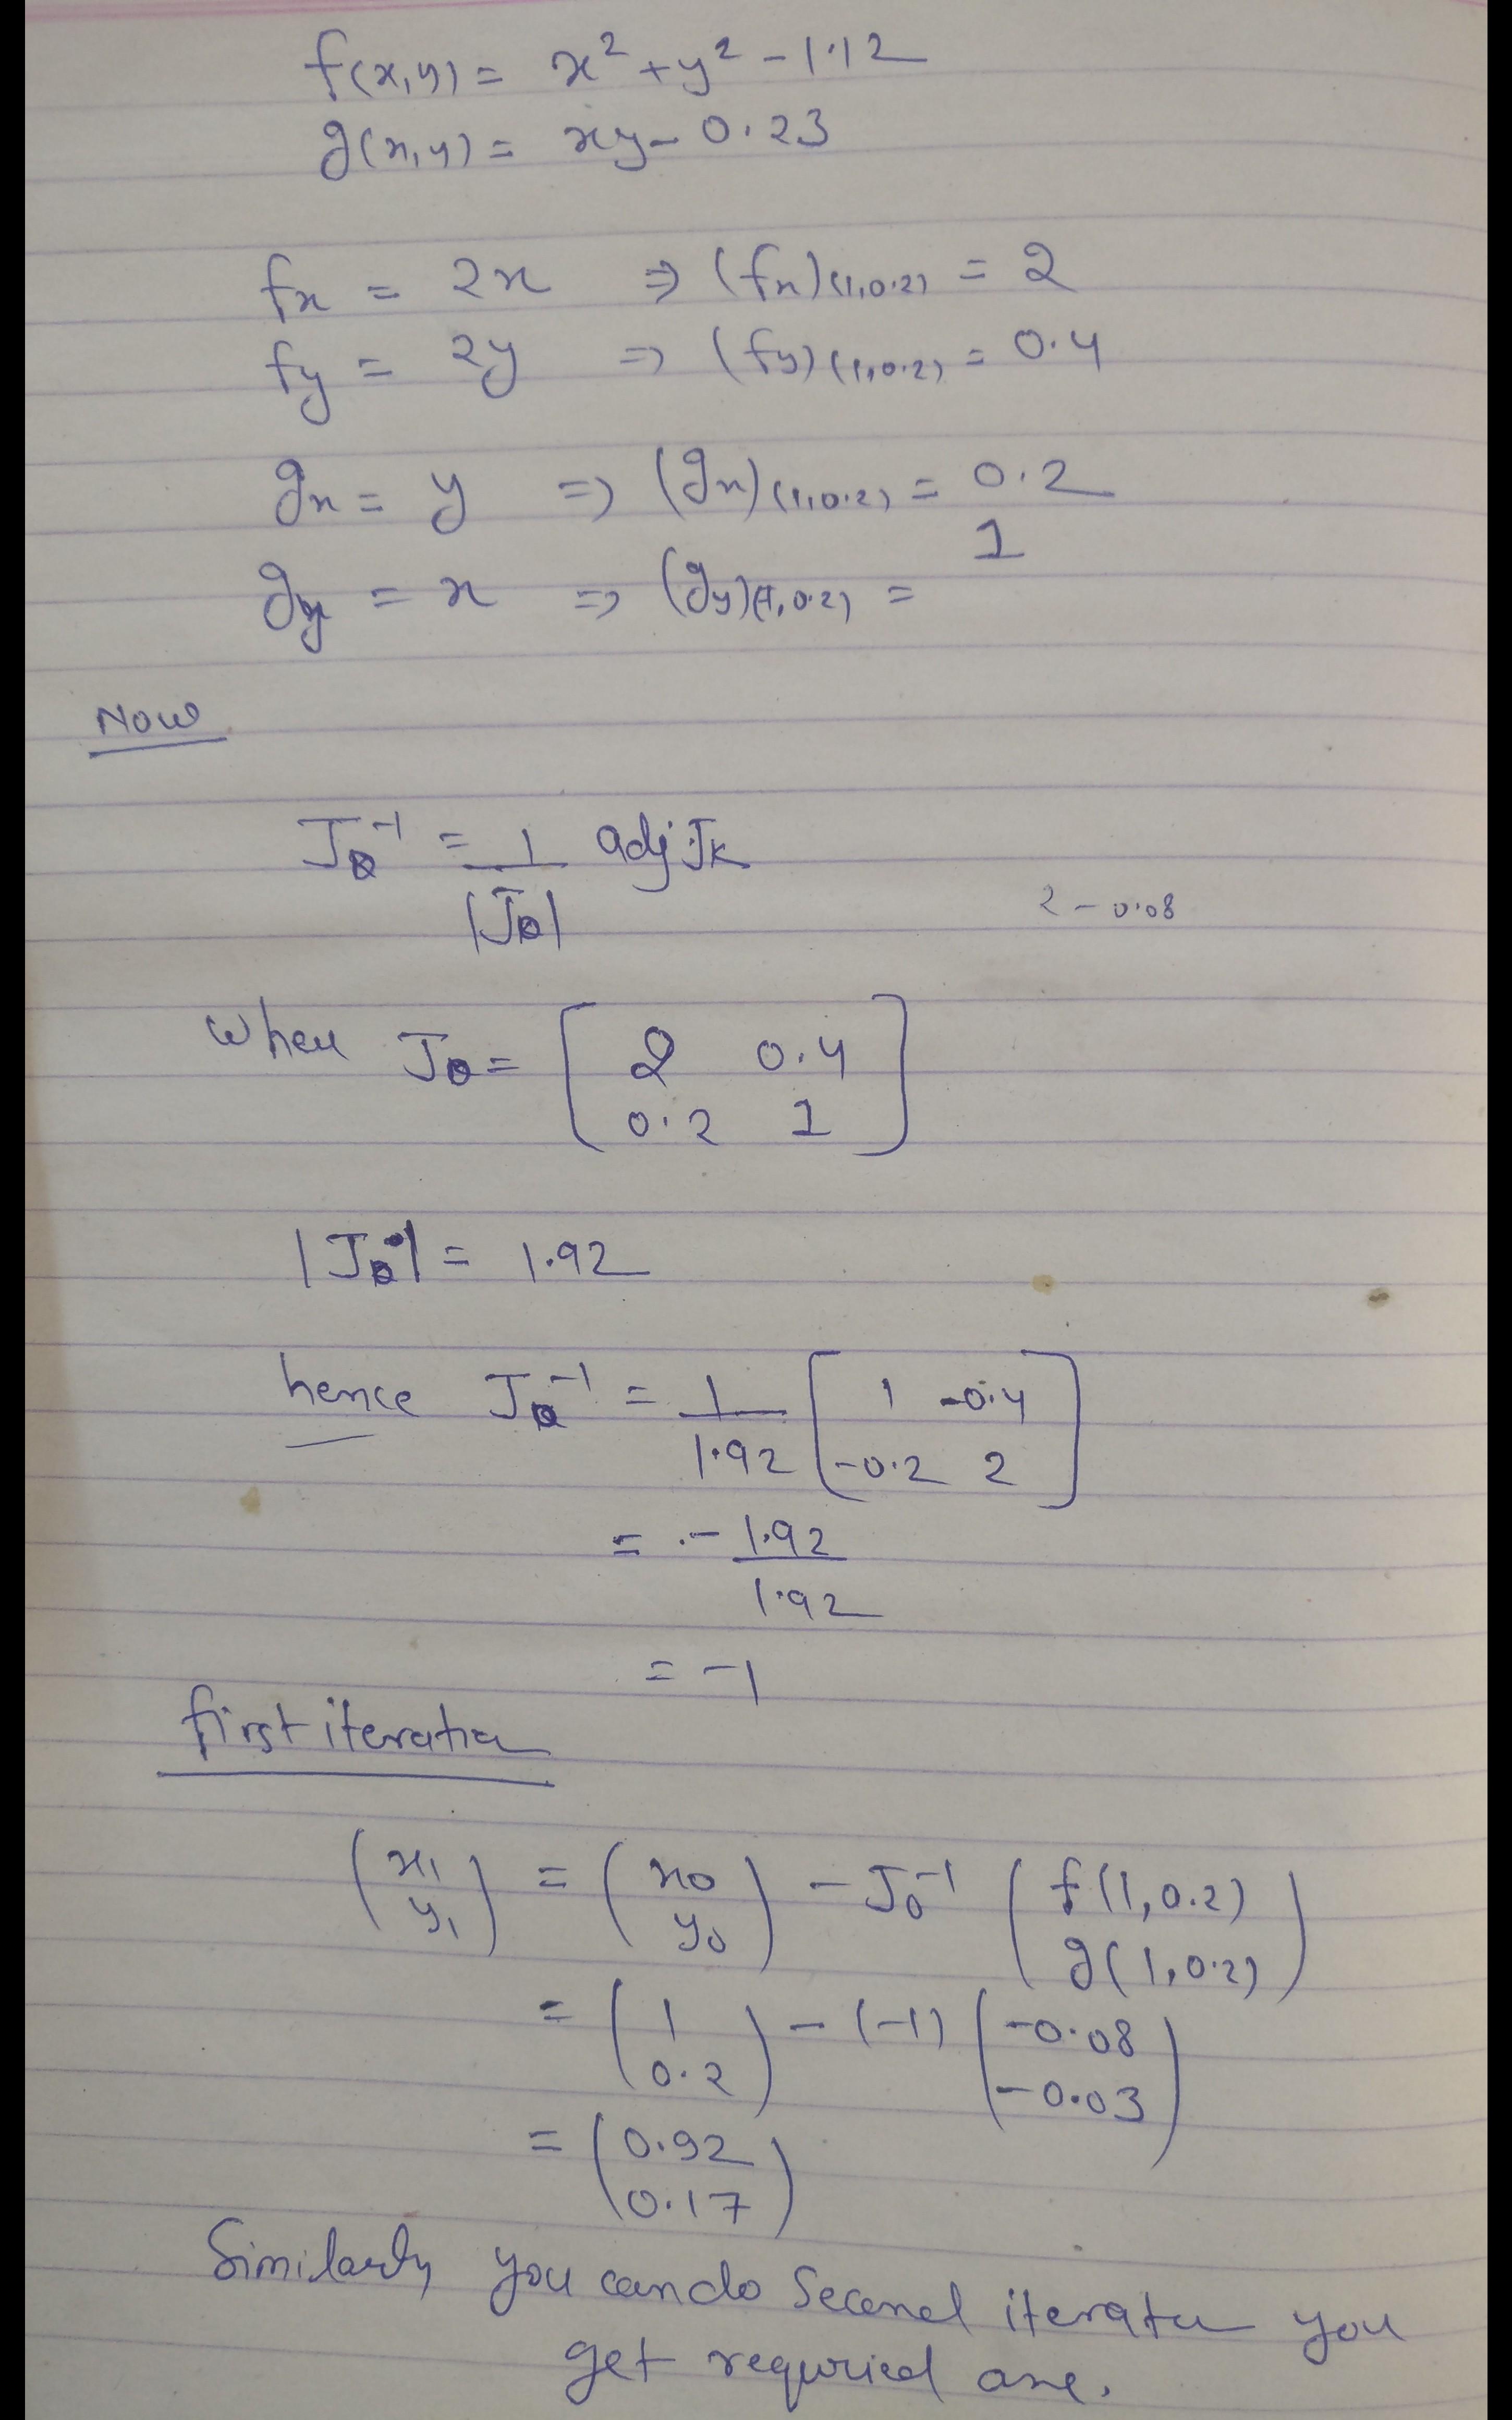 f(x,y) = x² + y² - 1.12
g(x,y) = xy - 0.23
fx = 2x ⇒ (fx)(1,0.2) = 2
fy = 2y ⇒ (fy)(1,0.2) = 0.4
gx = y ⇒ (gx)(1,0.2) = 0.2
gy = x ⇒ (gy)(1,0.2) = 1
Now
J0⁻¹ = 1/|J0| adj Jk
2 - 0.08
when J0 = [ 2 0.4
0.2 1 ]
|J0| = 1.92
hence J0⁻¹ = 1/1.92 [ 1 -0.4
-0.2 2 ]
= - 1.92/1.92
= -1
first iteratia
(x1 y1) = (x0 y0) - J0⁻¹ ( f(1,0.2)
g(1,0.2) )
= (1 0.2) - (-1) (-0.08 -0.03)
= (0.92 0.17)
Similarly you can do Second iteratu you
get requried ans.